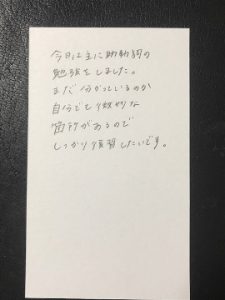 今日は主に助動詞の
勉強をしました。
まだ分かっているのか
自分でも微妙な
箇所があるので
しっかり復習したいです。